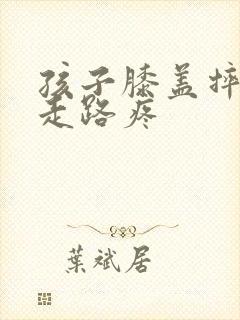 孩子膝盖摔
走路疼
葉斌居